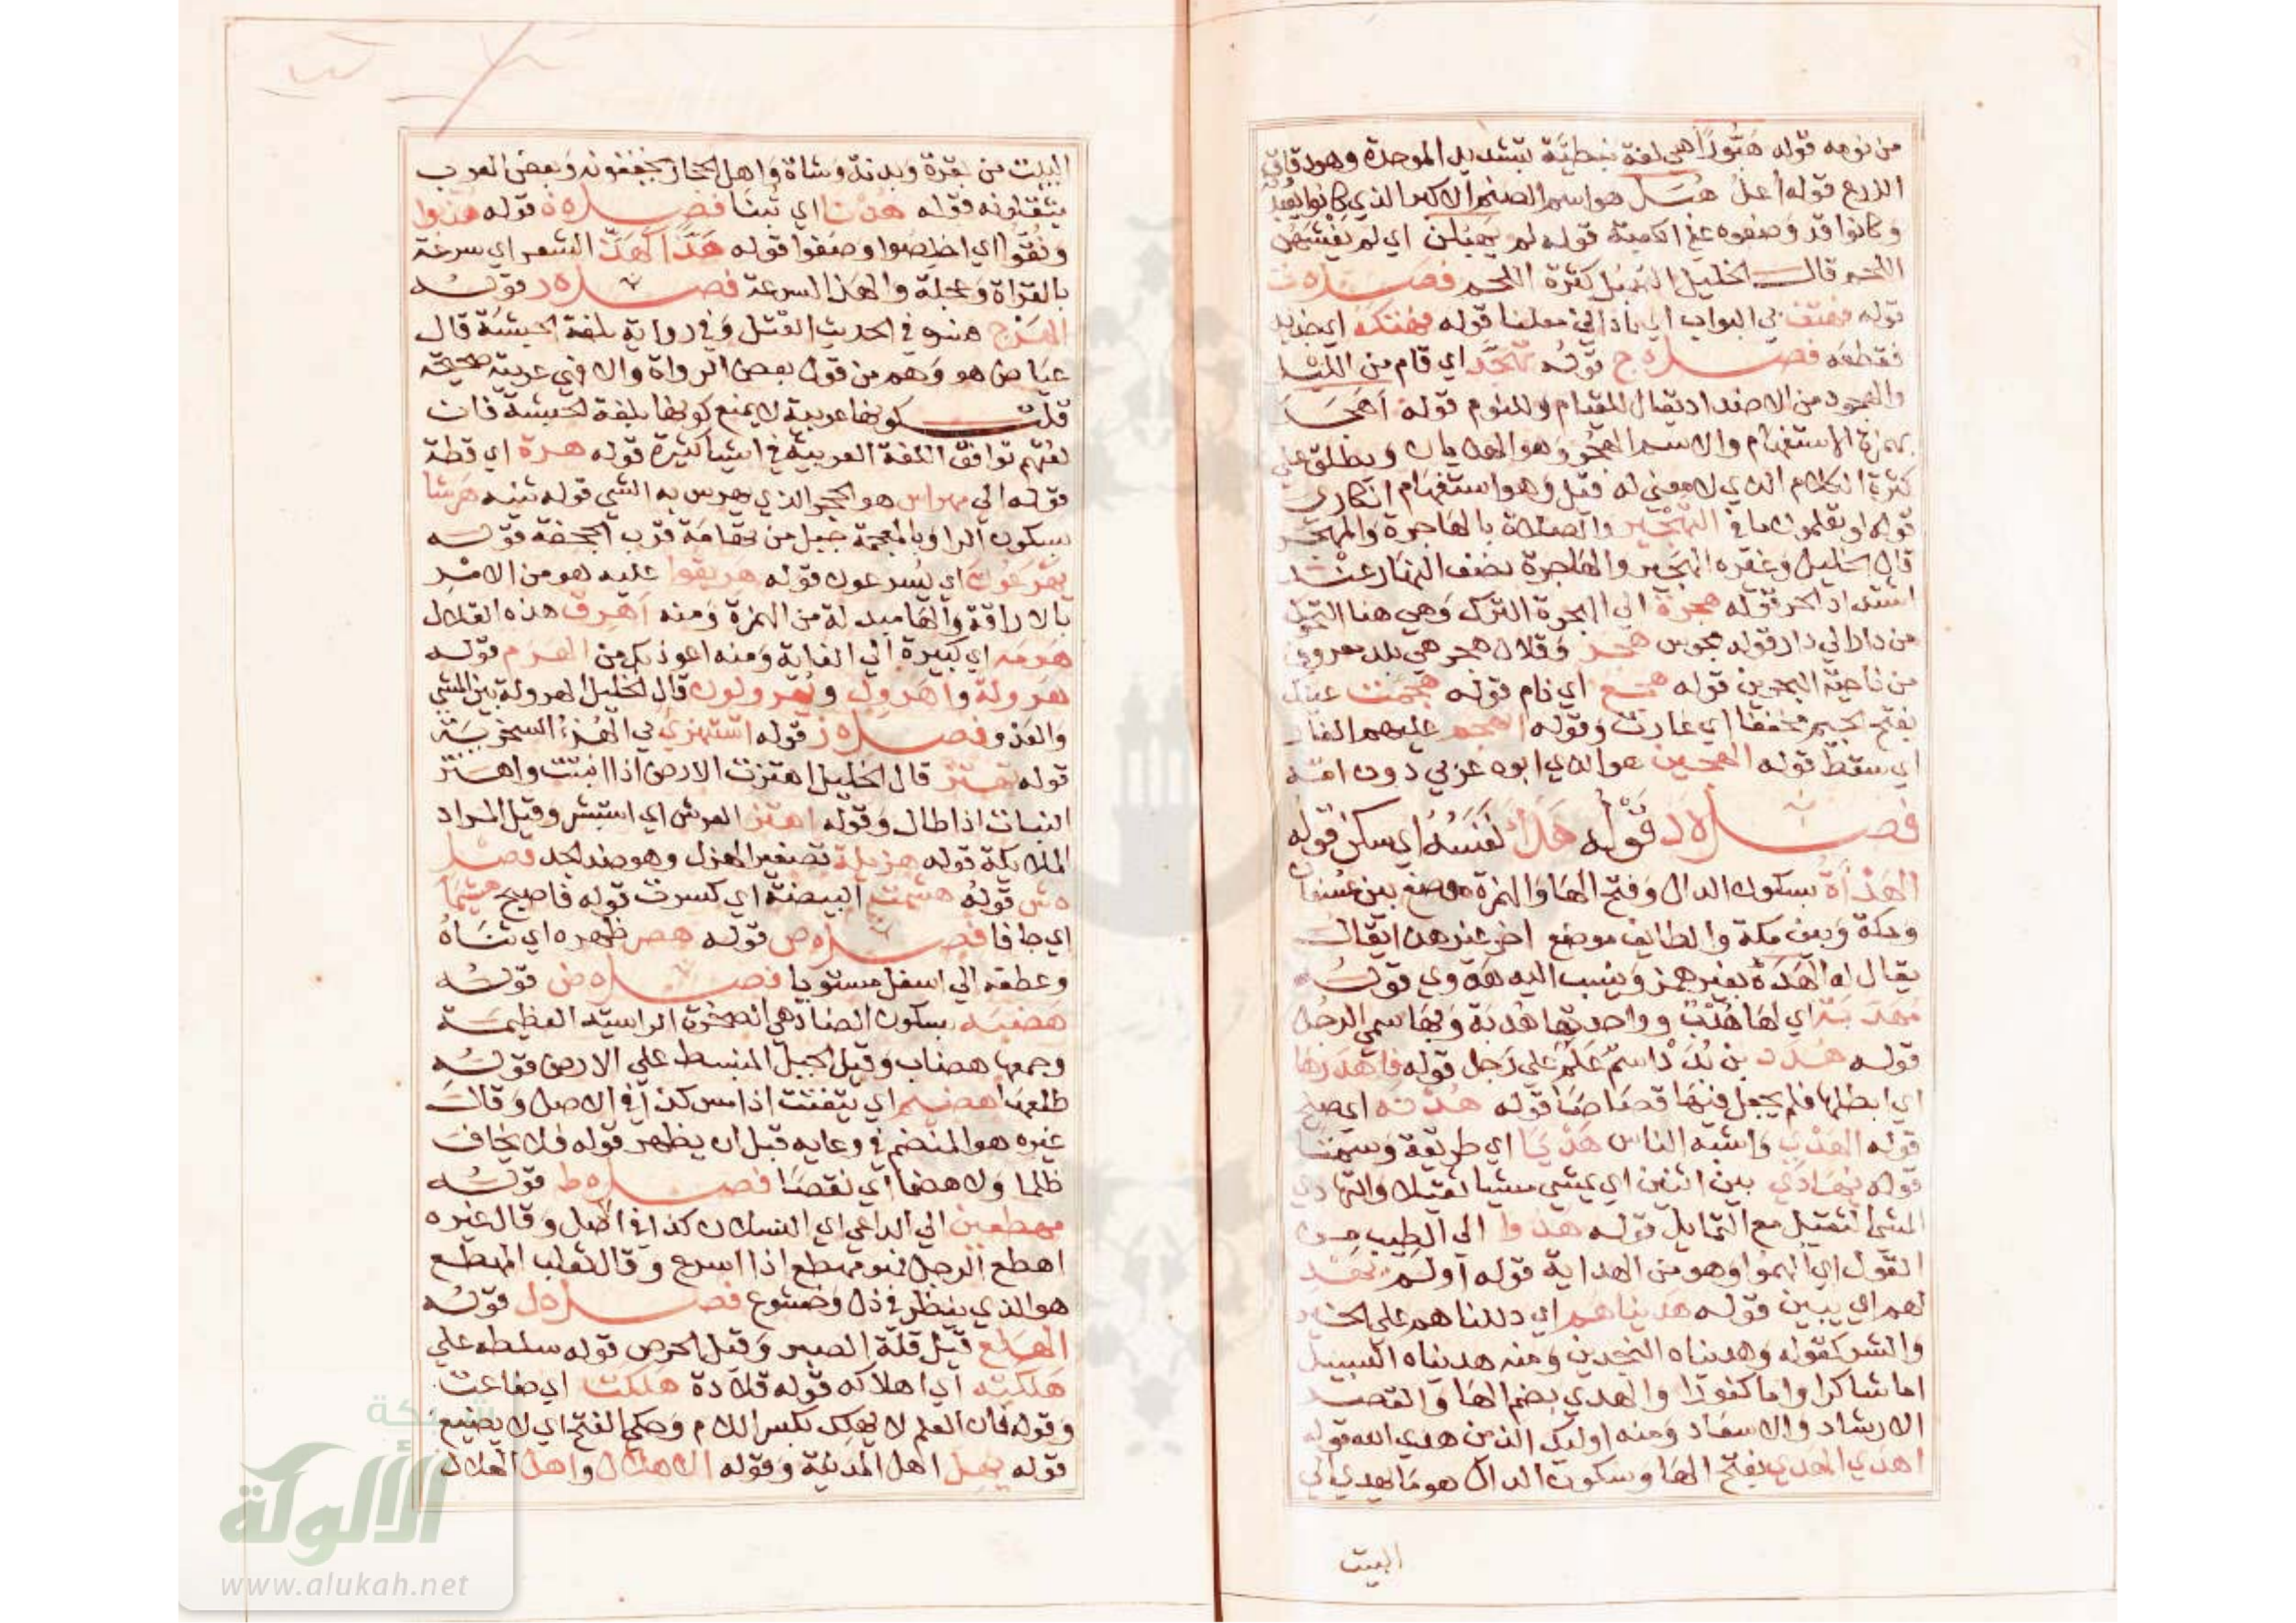 من نومه قوله هَبُّورًا هي لغة نبطية بتشديد الموحدة وهو دقاق
الزرع قوله أعلُ هُبَل هو اسم الصنم الاكبر الذي كانوا يعبدونه
وكانوا قد وضعوه عند الكعبة قوله لم يهبلن اي لم يغشهن
اللحم قال الخليل التهبل كثرة اللحم فصل ه ت
قوله فهتف بي البواب اي ناداني معلنا قوله فهتكه اي جذبه
فقطعه فصل ه ج قوله تهجّد اي قام من الليل
والهجود من الاضداد يقال للقيام وللنوم قوله أهجر
بهمزة الاستفهام والاسم الهجر وهو الهذيان ويطلق على
كثرة الكلام الذي لا معنى له قيل وهو استفهام انكاري
قوله لو يعلمون ما في التهجير والصلاة بالهاجرة والهجير
قال الخليل وغيره الهجير والهاجرة نصف النهار عند
اشتداد الحر قوله هجرة الي الهجرة الترك وهي هنا التحول
من دار الي دار قوله مجوس هجر وقلال هجر هي بلد معروف
من ناحية البحرين قوله هجع اي نام قوله هجمت عينك
بفتح الجيم مخففا اي غارت وقوله انهجم عليهم الغار
اي سقط قوله الهجين هو الذي ابوه عربي دون امه
فصل ه د قوله هَدَأَ نَفَسُهُ اي سكن قوله
الهَدْأَة بسكون الدال وفتح الها والهمزة موضع بين عسفان
ومكة وبين مكة والطايف موضع اخر غير هذا يقال
يقال له الهَدَة بغير همز وينسب اليه هَدوي قوله
مهدبة اي لها هُدب وواحدتها هُدبة وبها سمي الرجل
قوله هُدد بن بُدد اسم علم على رجل قوله فاهدرها
اي ابطلها فلم يجعل فيها قصاصا قوله هُدنة اي صلح
قوله الهدي واشبه الناس هَدْيًا اي طريقة وسمتا
قوله يُهادَي بين اثنين اي يمشي مشيا ثقيلا والتهادي
المشي الثقيل مع التمايل قوله هدوا الي الطيب من
القول اي ألهموا وهو من الهداية قوله اولم يهد
لهم اي يبين قوله هديناهم اي دللناهم على الخير
والشر كقوله وهديناه النجدين ومنه هديناه السبيل
اما شاكرا واما كفورا والهدي بضم الها والقصر
الارشاد والاسعاد ومنه اوليك الذين هدي الله قوله
اهدي الهدي بفتح الها وسكون الدال هو ما يهدي الي
البيت
البيت من بقرة وبدنة وشاة واهل الحجاز يخففونه وبعض العرب
يثقلونه قوله هُدْنا اي تُبنا فصل ه ذ قوله هذبوا
ونُقّوا اي اخلصوا وصفوا قوله هَذًّا كَهَذِّ الشعر اي سرعة
بالقراة وعجلة والهذ السرعة فصل ه ر قوله
الهرْج فسره في الحديث القتل وفي رواية بلغة الحبشة قال
عياض هو وهم من قول بعض الرواة والا فهي عربية صحيحة
قلت كونها عربية لا يمنع كونها بلغة الحبشة فان
لغتهم توافق اللغة العربية في اشيا كثيرة قوله هرة اي قطة
قوله الي مهراس هو الحجر الذي يهرس به الشي قوله ثنية هَرشا
بسكون الرا وبالمعجمة جبل من تهامة قرب الجحفة قوله
يهرعون اي يُسرعون قوله هريقوا عليه هو من الامر
بالاراقة والها مبدلة من الهمزة ومنه اهرق هذه القلال
هرمة اي كبيرة الي الغاية ومنه اعوذ بك من الهرم قوله
هرولة واهرول ويهرولون قال الخليل الهرولة بين المشي
والعدو فصل ه ز قوله استهزئ بي الهزء السخرية
قوله تهتز قال الخليل اهتزت الارض اذا انبتت واهتز
النبات اذا طال وقوله اهتز العرش اي استبشر وقيل المراد
الملايكة قوله هزيلة تصغير الهزل وهو ضد الجد فصل
ه ش قوله هشمت البيضة اي كسرت قوله فاصبح هشيما
اي جافا فصل ه ص قوله هصر ظهره اي ثناه
وعطفه الي اسفل مستويا فصل ه ض قوله
هَضبة بسكون الضاد هي الصخرة الراسية العظيمة
وجمعها هضاب وقيل الجبل المنبسط على الارض قوله
طلعها هضيم اي يتفتت اذا مس كذا في الاصل وقال
غيره هو المنضم في وعايه قبل ان يظهر قوله فلا يخاف
ظلما ولا هضما اي نقصا فصل ه ط قوله
مهطعين الي الداعي اي النسلان كذا في اصل وقال غيره
اهطع الرجل فهو مهطع اذا اسرع وقال ثعلب المهطع
هو الذي ينظر في ذل وخشوع فصل ه ل قوله
الهلع قيل قلة الصبر وقيل الحرص قوله سلطه على
هلكته اي اهلاكه قوله قلادة هلكت اي ضاعت
وقوله فان العلم لا يهلك بكسر اللام وحكي الفتح اي لا يضيع
قوله يهل اهل المدينة وقوله الاهلال واهل الهلال
شبكة
الألوكة
www.alukah.net